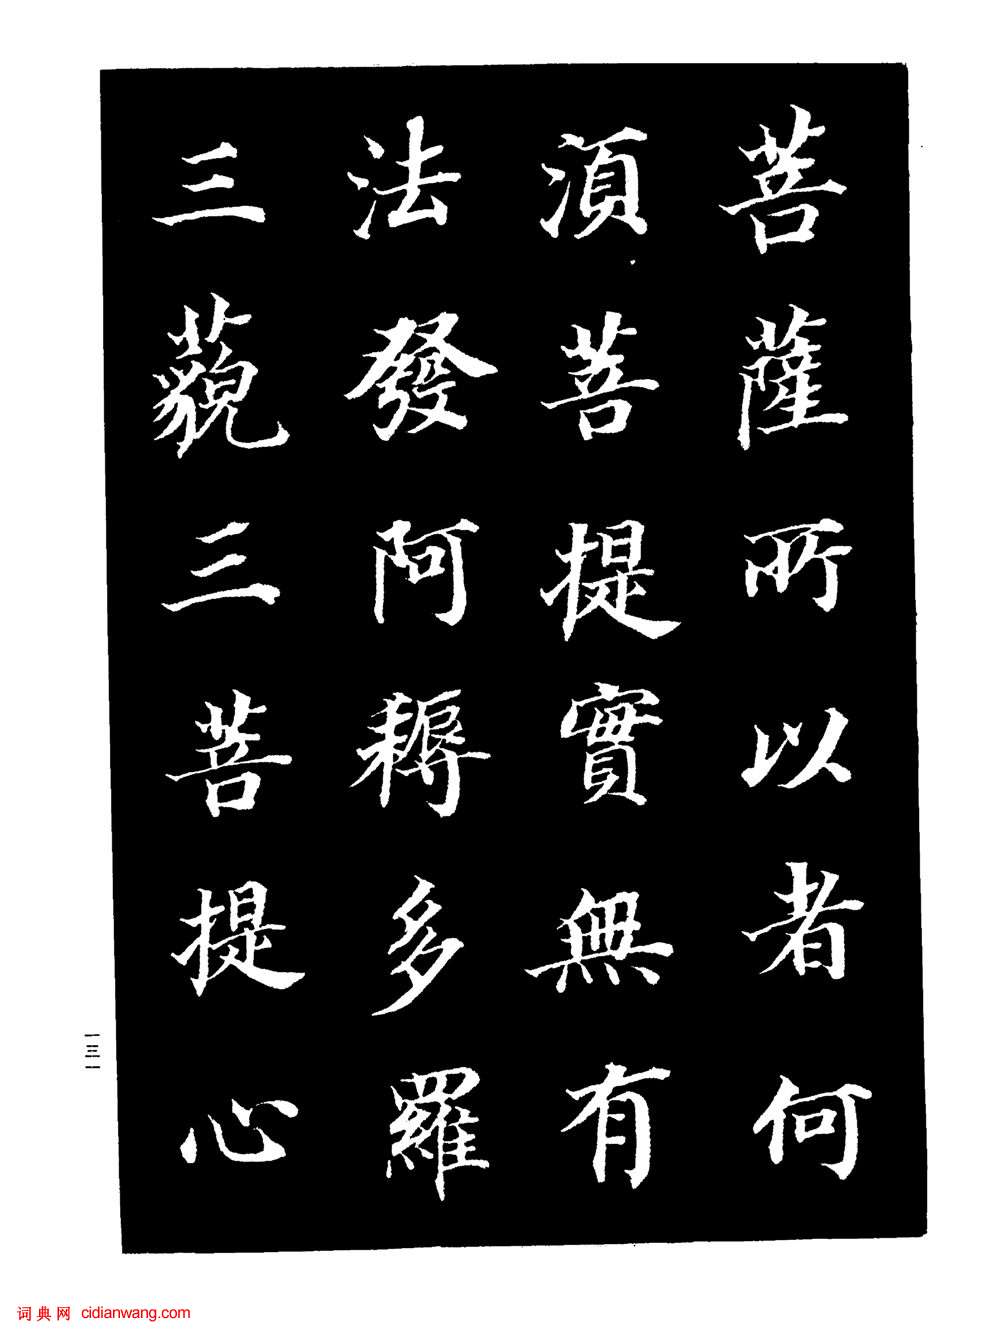 菩薩所以者何
湏菩提實無有
法發阿耨多羅
三藐三菩提心
一三一
词典网 cidianwang.com